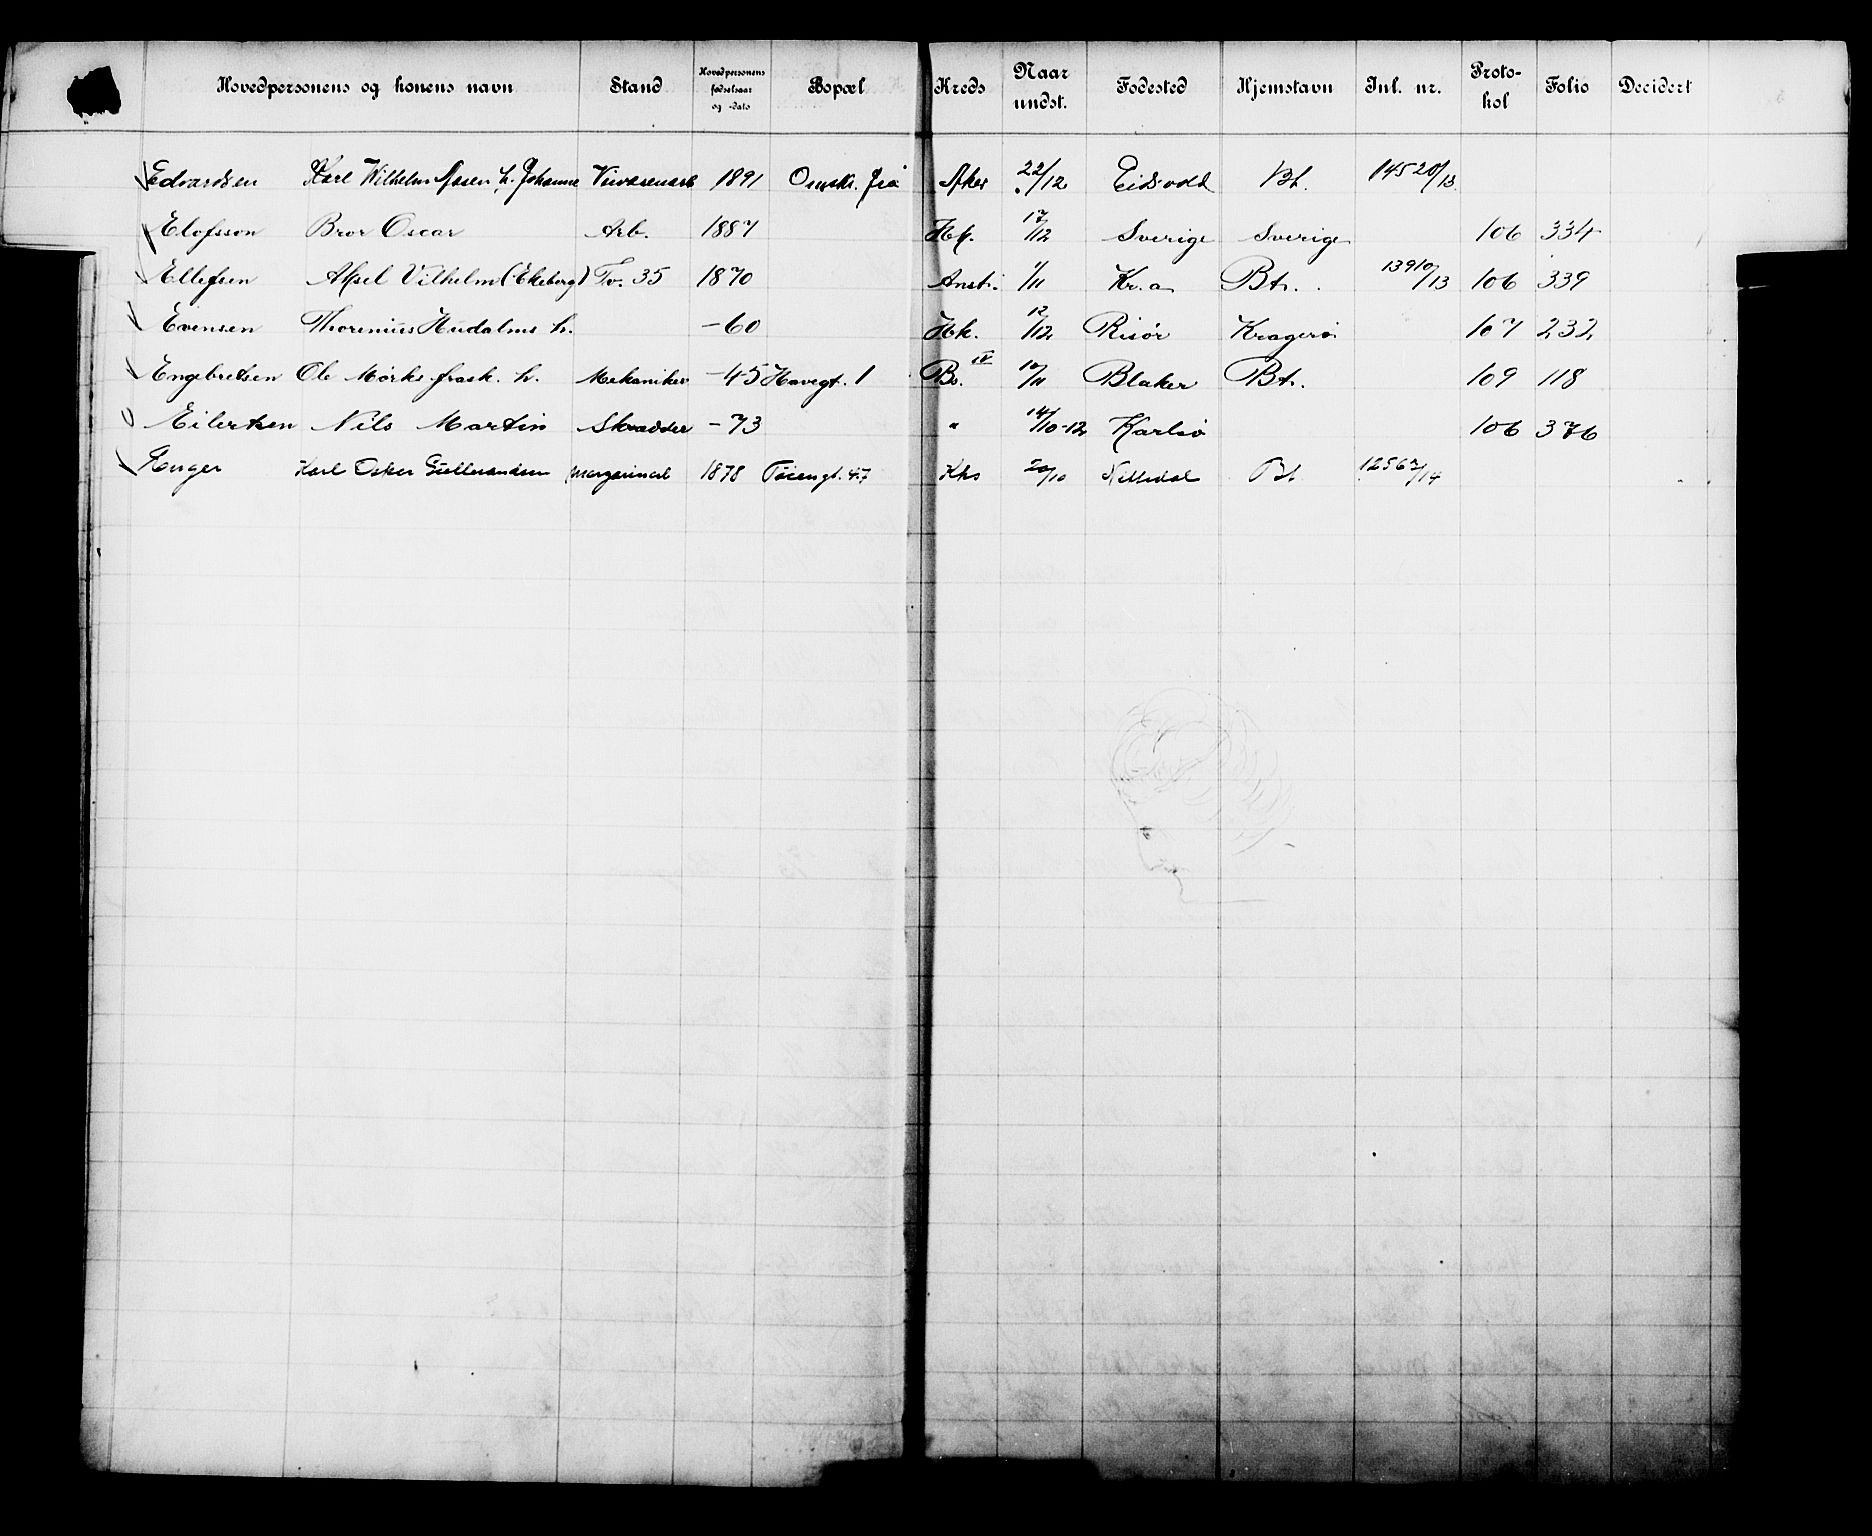 Hovedpersonens og konens navn Stand Hovedpersonens fødselsaar og -dato Bopæl Kreds Naar undst. Fødested Hjemstavn Jnl. nr. Proto-kol Folio Decidert
Edvardsen Karl Wilhelm h. Johanne 1891 Omstr. fra Aker 22/12 Eidsvold Bt. 14520/13
Elofsson Bror Oscar Arb. 1887 Hk. 17/12 Sverige Sverige 106 334
Ellefsen Aksel Vilhelm (Ekeberg) Tv. 35 1870 Anst. 1/11 Kr.a Bt. 13910/13 106 339
Evensen Thorenius Hudalms h. -60 Hk. 12/12 Risör Kragerö 107 232
Engebretsen Ole Mörk frask. h. Mekaniker -45 Havegt. 1 Bs. IV 10/11 Blaker Bt. 109 118
Eilertsen Nils Martin Skrædder -73 " 14/10-12 Karlsö 106 376
Enger Karl Oskar Gulbrandsen 1878 Töiengt. 47 Khs 20/10 Nittedal Bt 12567/14